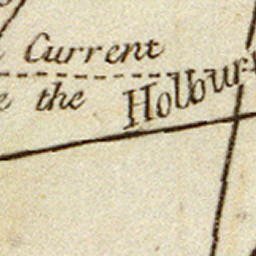 Current
the
Holbur